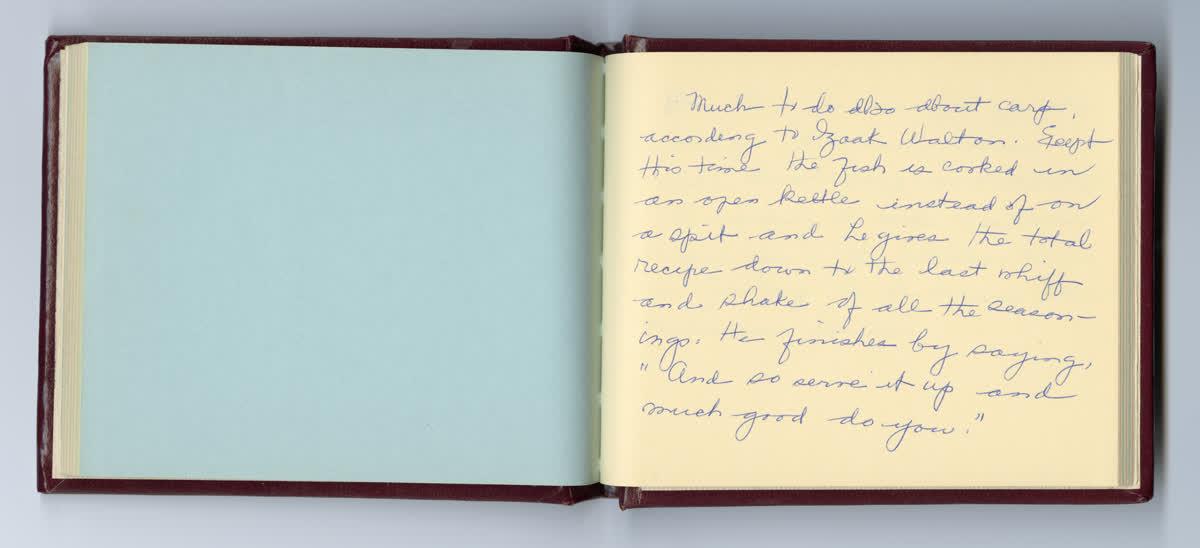 Much to do also about carp,
according to Izaak Walton. Except
this time the fish is cooked in
an open kettle instead of on
a spit and he gives the total
recipe down to the last whiff
and shake of all the season-
ings. He finishes by saying,
"And so serve it up and
much good do you."